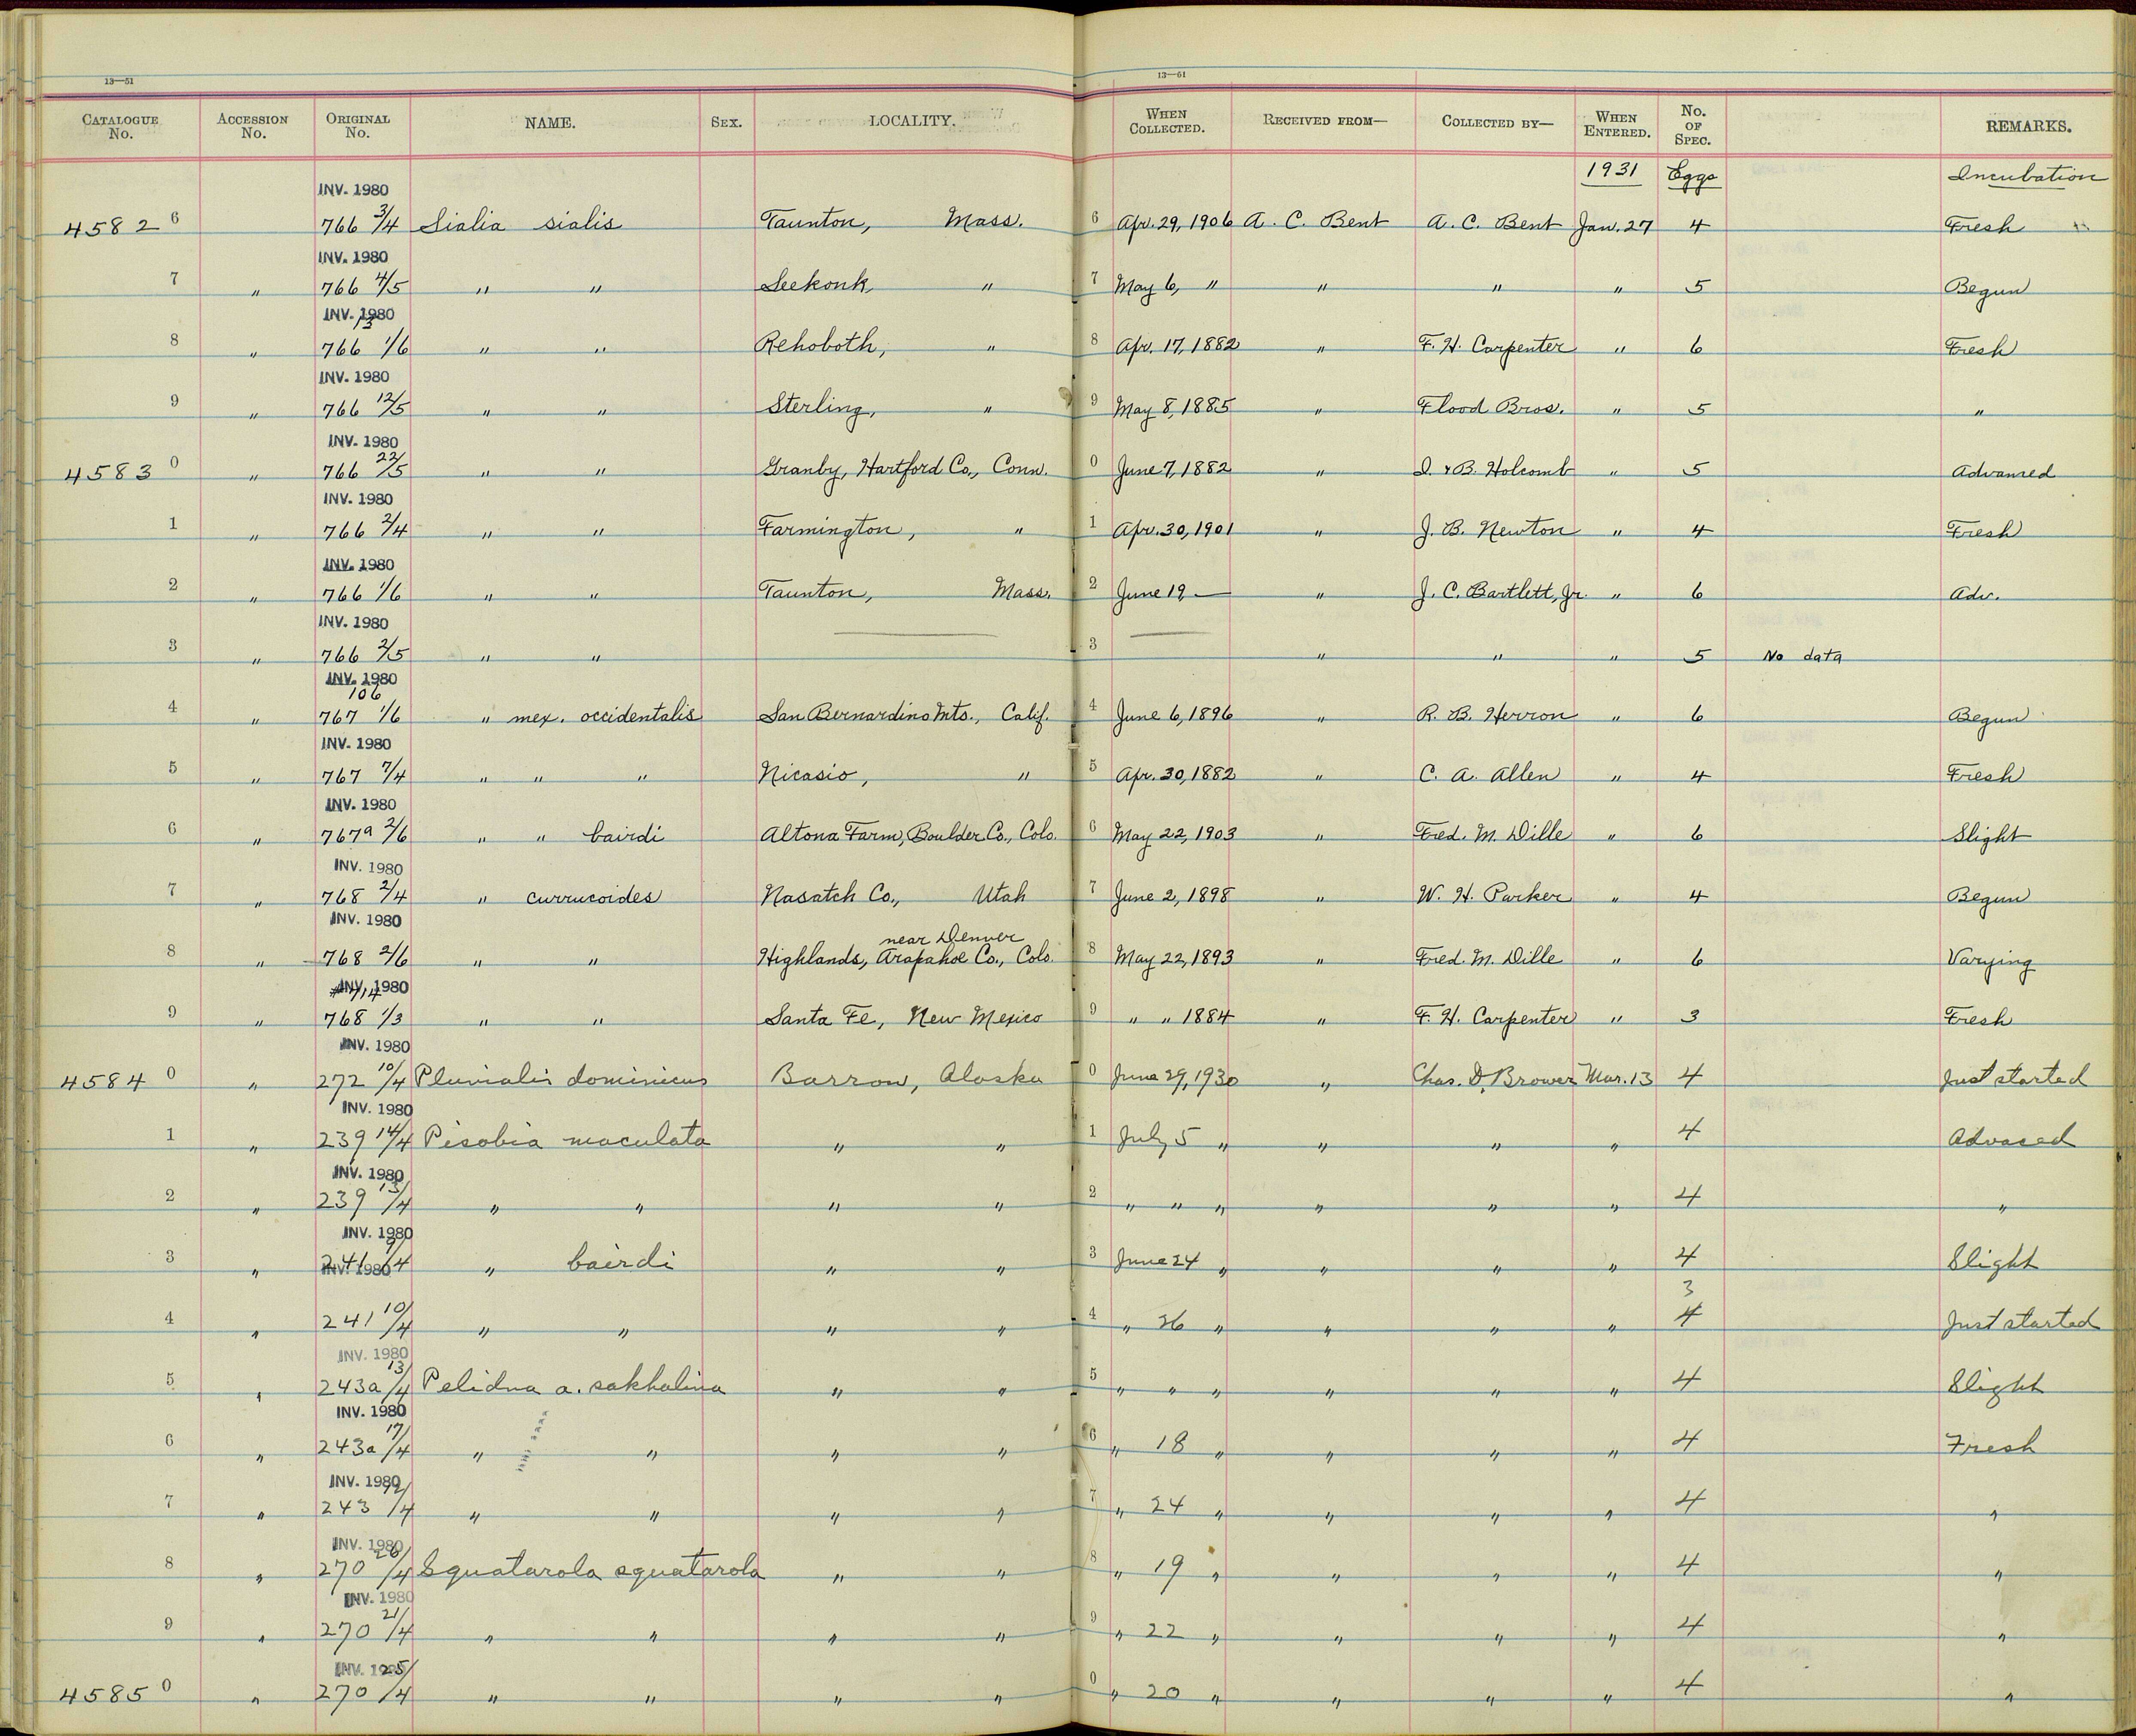 13—51 13—51
CATALOGUE No. ACCESSION No. ORIGINAL No. NAME. SEX. LOCALITY. WHEN COLLECTED. RECEIVED FROM— COLLECTED BY— WHEN ENTERED. No. OF SPEC. REMARKS.
1931 Eggs Incubation
INV. 1980
4582 6 766 3/4 Sialia sialis Taunton, Mass. 6 Apr. 29, 1906 A. C. Bent A. C. Bent Jan. 27 4 Fresh
INV. 1980
7 " 766 4/5 " " Seekonk, " 7 May 6, " " " " 5 Begun
INV. 1980
8 " 766 13/6 " " Rehoboth, " 8 Apr. 17, 1882 " F. H. Carpenter " 6 Fresh
INV. 1980
9 " 766 12/5 " " Sterling, " 9 May 8, 1885 " Flood Bros. " 5 "
INV. 1980
4583 0 " 766 22/5 " " Granby, Hartford Co., Conn. 0 June 7, 1882 " I. & B. Holcomb " 5 Advanced
INV. 1980
1 " 766 2/4 " " Farmington, " 1 Apr. 30, 1901 " J. B. Newton " 4 Fresh
INV. 1980
2 " 766 1/6 " " Taunton, Mass. 2 June 19 — " J. C. Bartlett, Jr. " 6 Adv.
INV. 1980
3 " 766 2/5 " " — 3 — " " " 5 No data
INV. 1980
106
4 " 767 1/6 " mex. occidentalis San Bernardino Mts., Calif. 4 June 6, 1896 " R. B. Herron " 6 Begun
INV. 1980
5 " 767 7/4 " " " Nicasio, " 5 Apr. 30, 1882 " C. A. Allen " 4 Fresh
INV. 1980
6 " 767a 2/6 " " bairdi Altona Farm, Boulder Co., Colo. 6 May 22, 1903 " Fred. M. Dille " 6 Slight
INV. 1980
7 " 768 2/4 " currucoides Wasatch Co., Utah 7 June 2, 1898 " W. H. Parker " 4 Begun
INV. 1980
near Denver
8 " 768 2/6 " " Highlands, Arapahoe Co., Colo. 8 May 22, 1893 " Fred. M. Dille " 6 Varying
INV. 1980
9 " 768 1/3 " " Santa Fe, New Mexico 9 " " 1884 " F. H. Carpenter " 3 Fresh
INV. 1980
4584 0 " 272 10/4 Pluvialis dominicus Barrow, Alaska 0 June 29, 1930 " Chas. D. Brower Mar. 13 4 Just started
INV. 1980
1 " 239 14/4 Pisobia maculata " " 1 July 5 " " " " 4 Advaced
INV. 1980
2 " 239 13/4 " " " " 2 " " " " " " 4 "
INV. 1980
3 " 241 9/4 " bairdi " " 3 June 24 " " " " 4 Slight
INV. 1980
3
4 " 241 10/4 " " " " 4 " 26 " " " " 4 Just started
INV. 1980
5 " 243a 13/4 Pelidna a. sakhalina " " 5 " " " " " " 4 Slight
INV. 1980
6 " 243a 17/4 " " " " 6 " 18 " " " " 4 Fresh
INV. 1980
7 " 243 12/4 " " " " 7 " 24 " " " " 4 "
INV. 1980
8 " 270 26/4 Squatarola squatarola " " 8 " 19 " " " " 4 "
INV. 1980
9 " 270 21/4 " " " " 9 " 22 " " " " 4 "
INV. 1980
4585 0 " 270 25/4 " " " " 0 " 20 " " " " 4 "